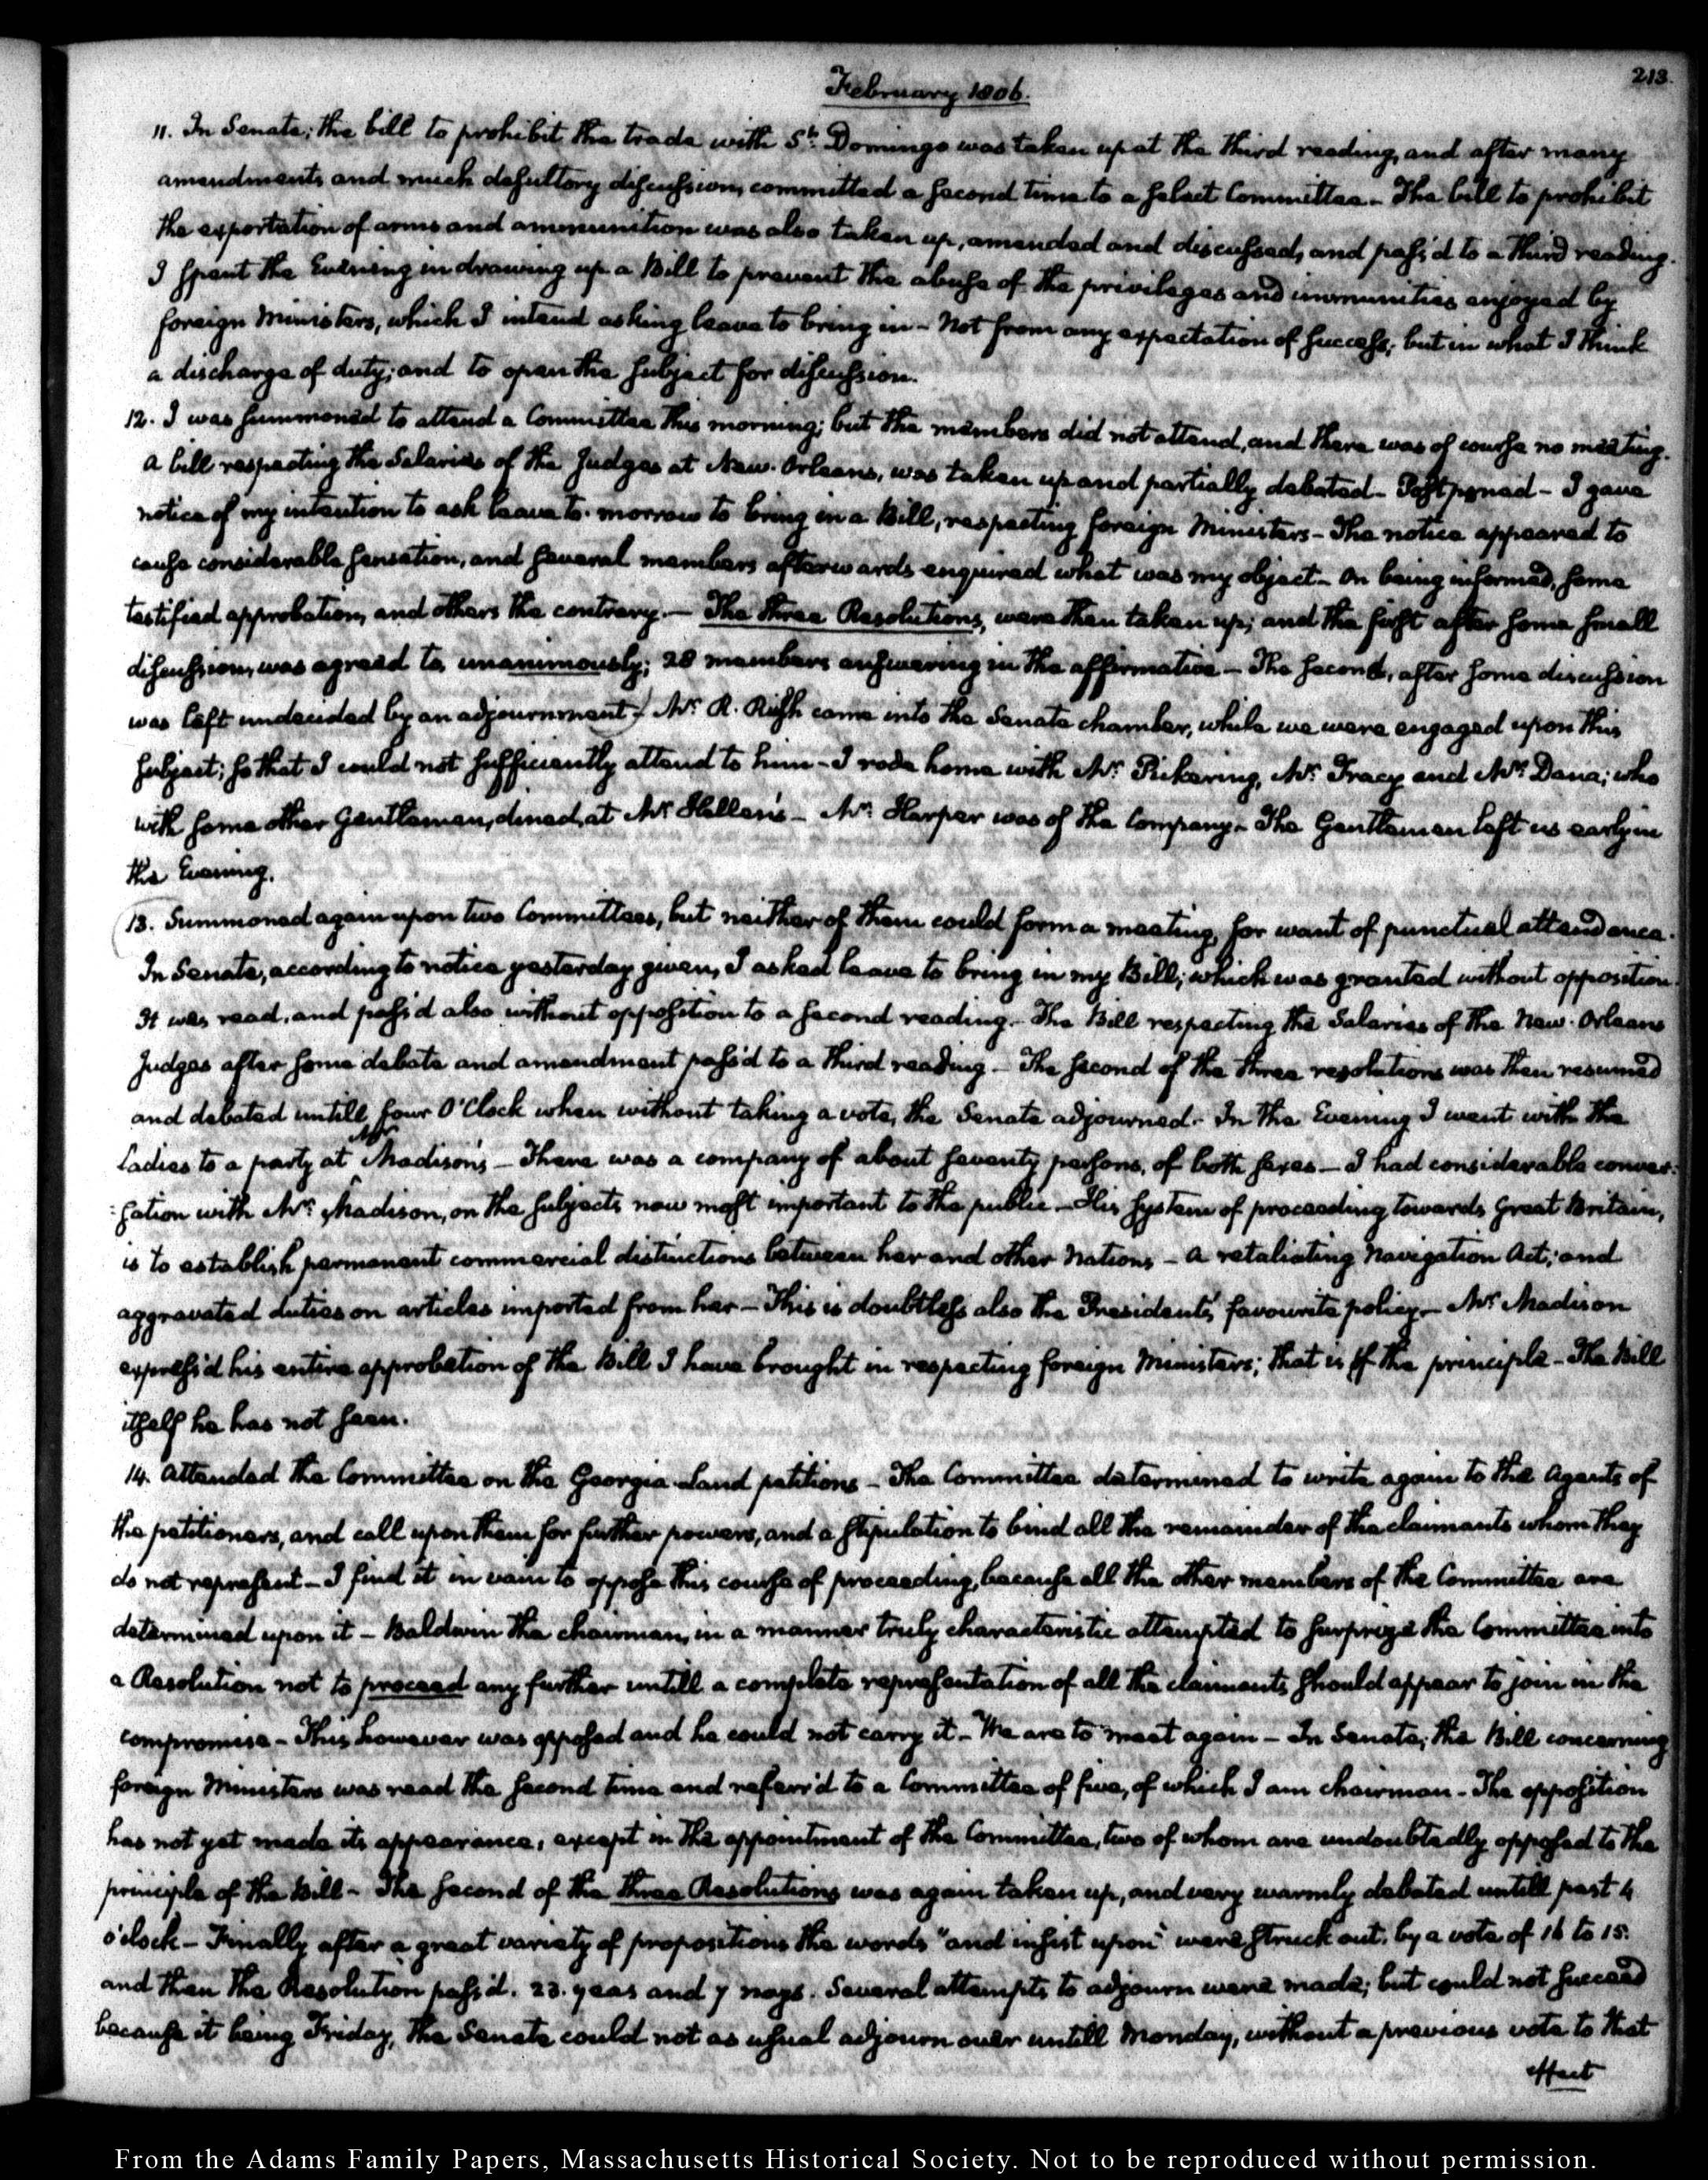 213.
February 1806.
11. In Senate; the bill to prohibit the trade with St. Domingo was taken up at the third reading, and after many
amendments and much desultory discussion, committed a second time to a select Committee. The bill to prohibit
the exportation of arms and ammunition was also taken up, amended and discussed, and pass'd to a third reading.
I spent the Evening in drawing up a Bill to prevent the abuse of the privileges and immunities enjoyed by
foreign Ministers, which I intend asking leave to bring in - Not from any expectation of success; but in what I think
a discharge of duty; and to open the subject for discussion.
12. I was summoned to attend a Committee this morning; but the members did not attend, and there was of course no meeting.
A bill respecting the Salaries of the Judges at New-Orleans, was taken up and partially debated - Postponed - I gave
notice of my intention to ask leave to-morrow to bring in a Bill, respecting foreign Ministers - The notice appeared to
cause considerable sensation, and several members afterwards enquired what was my object - On being informed, some
testified approbation, and others the contrary. - The three Resolutions, were then taken up; and the first after some small
discussion, was agreed to, unanimously; 28 members answering in the affirmative - The second, after some discussion
was left undecided by an adjournment - Mr. R. Rush came into the Senate chamber, while we were engaged upon this
subject; so that I could not sufficiently attend to him - I rode home with Mr. Pickering, Mr. Tracy and Mr. Dana; who
with some other Gentlemen, dined, at Mr. Hellen's - Mr. Harper was of the Company - The Gentlemen left us early in
the Evening.
13. Summoned again upon two Committees, but neither of them could form a meeting, for want of punctual attendance.
In Senate, according to notice yesterday given, I asked leave to bring in my Bill; which was granted without opposition.
It was read, and pass'd also without opposition to a second reading. - The Bill respecting the Salaries of the New-Orleans
Judges after some debate and amendment pass'd to a third reading - The second of the three resolutions was then resumed
and debated untill four O'Clock when without taking a vote, the Senate adjourned. - In the Evening I went with the
Ladies to a party at Mr. Madison's - There was a company of about seventy persons, of both sexes - I had considerable conver-
-sation with Mr. Madison, on the subjects now most important to the public - His system of proceeding towards Great Britain,
is to establish permanent commercial distinctions between her and other Nations - a retaliating Navigation Act; and
aggravated duties on articles imported from her - This is doubtless also the President's favourite policy - Mr. Madison
express'd his entire approbation of the Bill I have brought in respecting foreign Ministers; that is of the principle - The Bill
itself he has not seen.
14. Attended the Committee on the Georgia Land petitions - The Committee determined to write again to the Agents of
the petitioners, and call upon them for further powers, and a stipulation to bind all the remainder of the claimants whom they
do not represent - I find it in vain to oppose this course of proceeding, because all the other members of the Committee are
determined upon it - Baldwin the chairman, in a manner truly characteristic attempted to surprize the Committee into
a Resolution not to proceed any further untill a complete representation of all the claimants should appear to join in the
compromise - This however was opposed and he could not carry it - We are to meet again - In Senate, the Bill concerning
foreign Ministers was read the second time and referr'd to a Committee of five, of which I am chairman - The opposition
has not yet made its appearance, except in the appointment of the Committee, two of whom are undoubtedly opposed to the
principle of the Bill - The second of the three Resolutions was again taken up, and very warmly debated untill past 4
o'clock - Finally after a great variety of propositions the words "and insist upon" were struck out, by a vote of 16 to 15.
and then the Resolution pass'd. 23. yeas and 7 nays. Several attempts to adjourn were made; but could not succeed
because it being Friday, the Senate could not as usual adjourn over untill Monday, without a previous vote to that
effect
From the Adams Family Papers, Massachusetts Historical Society. Not to be reproduced without permission.